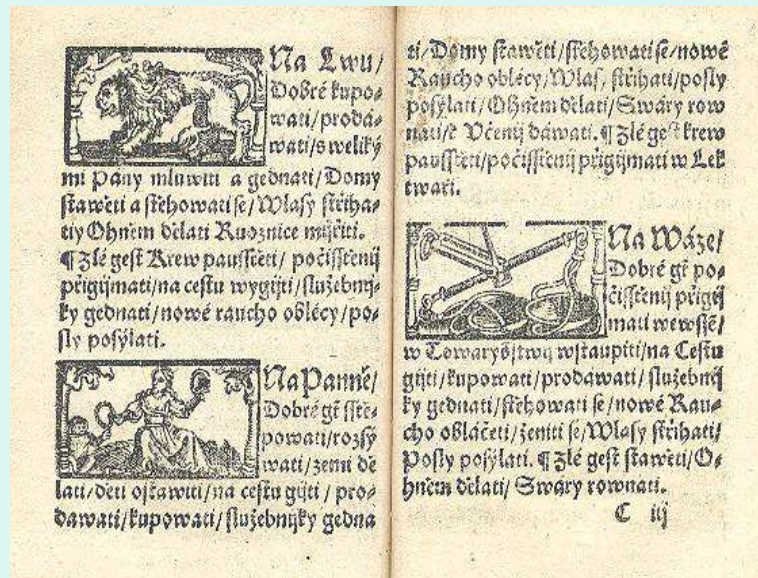 Na Lwu/
Dobré kupo⸗
wati/prodá⸗
wati/s weliký
mi Pány mluwiti a gednati/Domy
stawěti a stěhowati se/Wlasy střiha⸗
ti y Ohněm dělati Ruoznice mijřiti.
¶ Zlé gest Krew pausstěti/ počisstěnij
přigijmati/na cestu wygijti/služebnij⸗
ky gednati/nowé raucho oblécy/po⸗
sly posýlati.
Na Panně/
Dobré gt sstě⸗
powati/rozsý
wati/zemi dě
lati/děti ostawiti/na cestu gijti / pro⸗
dáwati/kupowati/služebnijky gedna
ti/Domy stawěti/stěhowati se/nowé
Raucho oblécy/Wlasy střihati/posly
posýlati/Ohněm dělati/Swáry row
nati/k Včenij dáwati. ¶ Zlé gest krew
pausstěti/počisstěnij přigijmati w Lek
twaři.
Na Wáze/
Dobré gt po⸗
čisstěnij přigij
mati wewssě/
w Towaryšstwij wstaupiti/na Cestu
gijti/kupowati/prodáwati/služebnij
ky gednati/stěhowati se/nowé Rau⸗
cho obláčeti/ženiti se/Wlasy střihati/
Posly posýlati. ¶ Zlé gest stawěti/O⸗
hněm dělati/ Swáry rownati.
C iij